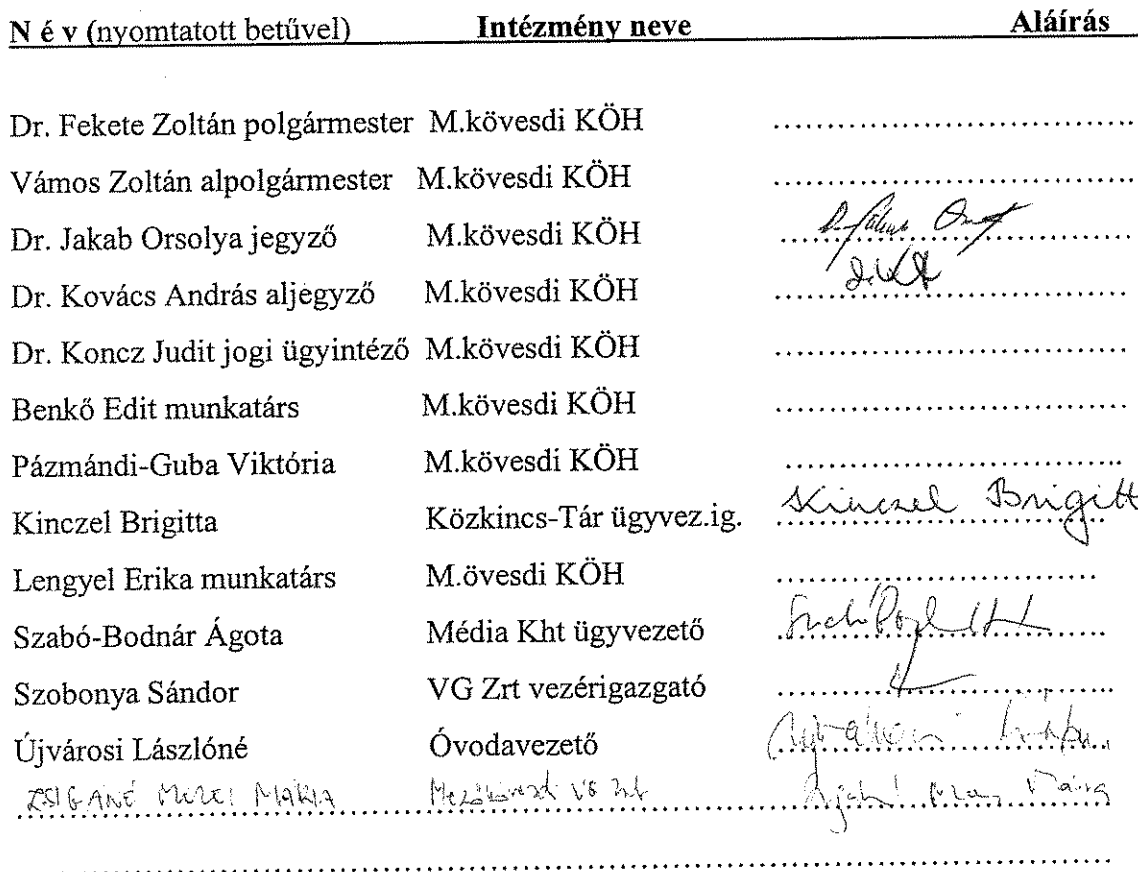 N é v (nyomtatott betűvel) Intézmény neve Aláírás
Dr. Fekete Zoltán polgármester M.kövesdi KÖH ..................................
Vámos Zoltán alpolgármester M.kövesdi KÖH ..................................
Dr. Jakab Orsolya jegyző M.kövesdi KÖH
Dr. Kovács András aljegyző M.kövesdi KÖH
Dr. Koncz Judit jogi ügyintéző M.kövesdi KÖH ..................................
Benkő Edit munkatárs M.kövesdi KÖH ..................................
Pázmándi-Guba Viktória M.kövesdi KÖH ..................................
Kinczel Brigitta Közkincs-Tár ügyvez.ig. Kinczel Brigitt
Lengyel Erika munkatárs M.övesdi KÖH ..................................
Szabó-Bodnár Ágota Média Kht ügyvezető
Szobonya Sándor VG Zrt vezérigazgató
Újvárosi Lászlóné Óvodavezető
ZSIGÁNÉ MEZEI MÁRIA Mezőkövesdi VG Zrt